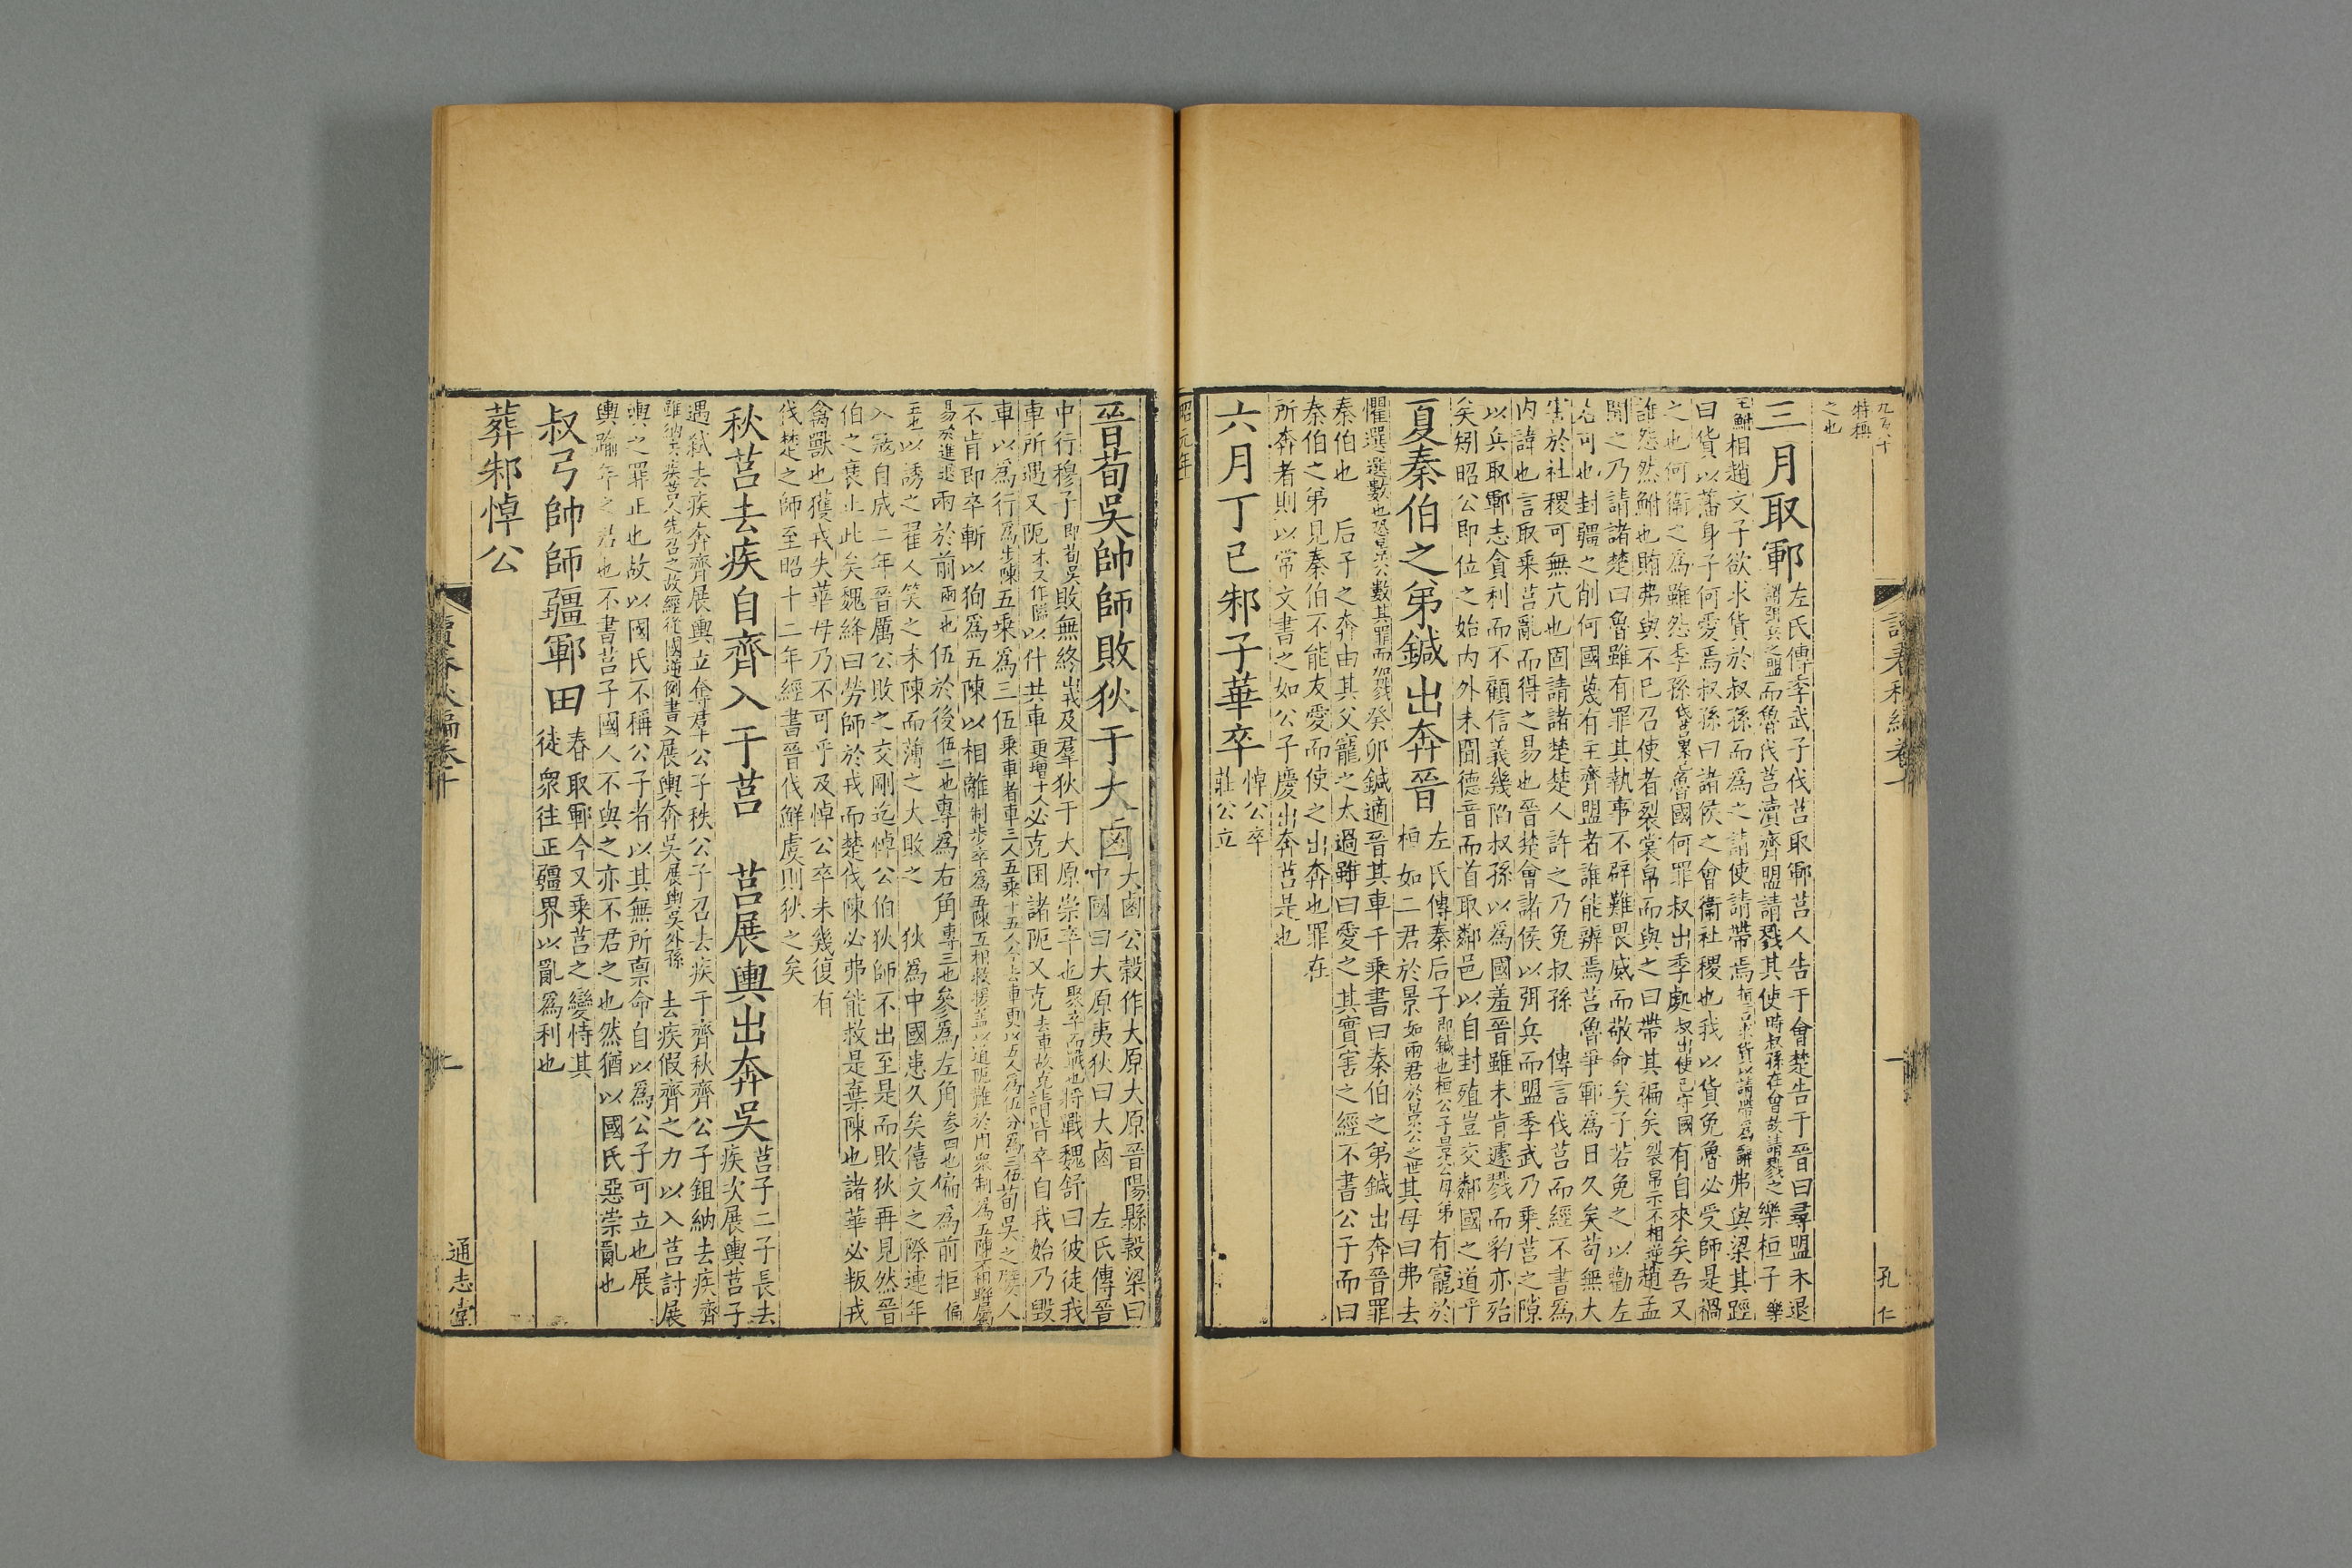 三月取鄆
左氏傳季武子伐莒取鄆莒人告于會楚告于晉曰尋盟未退
謂弭兵之盟而魯伐莒瀆齊盟請戮其使時叔孫在會故請戮之樂桓子樂
王鮒相趙文子欲求貨於叔孫而爲之請使請帶焉弗與梁其踁
曰貨以藩身子何愛焉叔孫曰諸侯之會衞社稷也我以貨免魯必受師是禍
之也何衞之爲雖怨季孫魯國何罪叔出季處叔出使季守國有自來矣吾又
誰怨然鮒也賄弗與不已召使者裂裳帛而與之曰帶其褊矣裂帛示不相逆趙孟
聞之乃請諸楚曰魯雖有罪其執事不辟難畏威而敬命矣子若免之以勸左
右可也封疆之削何國蔑有主齊盟者誰能辨焉莒魯爭鄆爲日久矣苟無大
害於社稷可無亢也固請諸楚楚人許之乃免叔孫　傳言伐莒而經不書爲
内諱也言取乘莒亂而得之易也晉楚會諸侯以弭兵而盟季武乃乘莒之隙
以兵取鄆志貪利而不顧信義幾陷叔孫以爲國羞晉雖未肯遽戮而豹亦殆
矣矧昭公即位之始内外未聞德音而首取鄰邑以自封殖豈交鄰國之道乎
夏秦伯之弟鍼出奔晉
左氏傳秦后子即鍼也桓公子景公母弟有寵於
桓如二君於景如兩君於景公之世其母曰弗去
懼選選數也恐景公數其罪而加戮癸卯鍼適晉其車千乘書曰秦伯之弟鍼出奔晉罪
秦伯也　后子之奔由其父寵之太過雖曰愛之其實害之經不書公子而曰
秦伯之弟見秦伯不能友愛而使之出奔也罪在
所奔者則以常文書之如公子慶出奔莒是也
六月丁巳邾子華卒
悼公卒
莊公立
昭元年
孔仁
晉荀吳帥師敗狄于大鹵
大鹵公穀作大原大原晉陽縣穀梁曰
中國曰大原夷狄曰大鹵　左氏傳晉
中行穆子即荀吳敗無終山戎及羣狄于大原崇卒也聚卒而戰也將戰魏舒曰彼徒我
車所遇又阨本又作隘以什共車更增十人必克困諸阨又克去車故克請皆卒自我始乃毀
車以爲行爲步陳五乘爲三伍乘車者車三人五乘十五人今去車更以五人爲伍分爲三伍荀吳之嬖人
不肯即卒斬以狥爲五陳以相離制步卒爲五陳五相救援蓋以道阨難於用衆制爲五陳不相聯屬
易於進退兩於前兩一也伍於後伍二也專爲右角專三也參爲左角参四也偏爲前拒偏
五也以誘之翟人笑之未陳而薄之大敗之　狄爲中國患久矣僖文之際連年
入寇自成二年晉厲公敗之交剛迄悼公伯狄師不出至是而敗狄再見然晉
伯之衰止此矣魏絳曰勞師於戎而楚伐陳必弗能救是棄陳也諸華必叛戎
禽獸也獲戎失華毋乃不可乎及悼公卒未幾復有
伐楚之師至昭十二年經書晉伐鮮虞則狄之矣
秋莒去疾自齊入于莒　莒展輿出奔吳
莒子二子長去
疾次展輿莒子
遇弑去疾奔齊展輿立奪羣公子秩公子召去疾于齊秋齊公子鉏納去疾齊
雖納去疾莒人先召之故經從國逆例書入展輿奔吳展輿吳外孫　去疾假齊之力以入莒討展
輿之罪正也故以國氏不稱公子者以其無所禀命自以爲公子可立也展
輿踰年之君也不書莒子國人不與之亦不君之也然猶以國氏惡崇亂也
叔弓帥師疆鄆田
春取鄆今又乘莒之變恃其
徒衆往正疆界以亂爲利也
葬邾悼公
讀春秋編卷十
通志堂